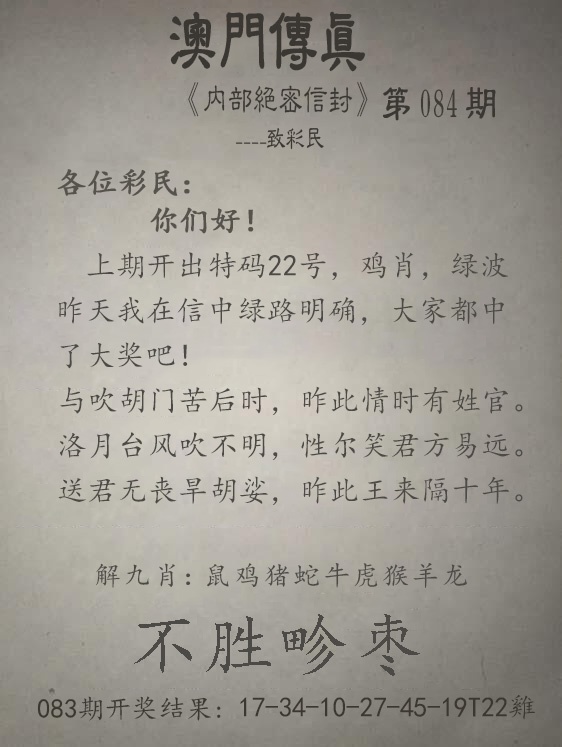 澳門傳眞
《内部絕密信封》第084期
----致彩民
各位彩民：
你们好！
上期开出特码22号，鸡肖，绿波
昨天我在信中绿路明确，大家都中
了大奖吧！
与吹胡门苦后时，昨此情时有姓官。
洛月台风吹不明，性尔笑君方易远。
送君无丧旱胡娑，昨此王来隔十年。
解九肖：鼠鸡猪蛇牛虎猴羊龙
不胜畛枣
083期开奖结果：17-34-10-27-45-19T22雞